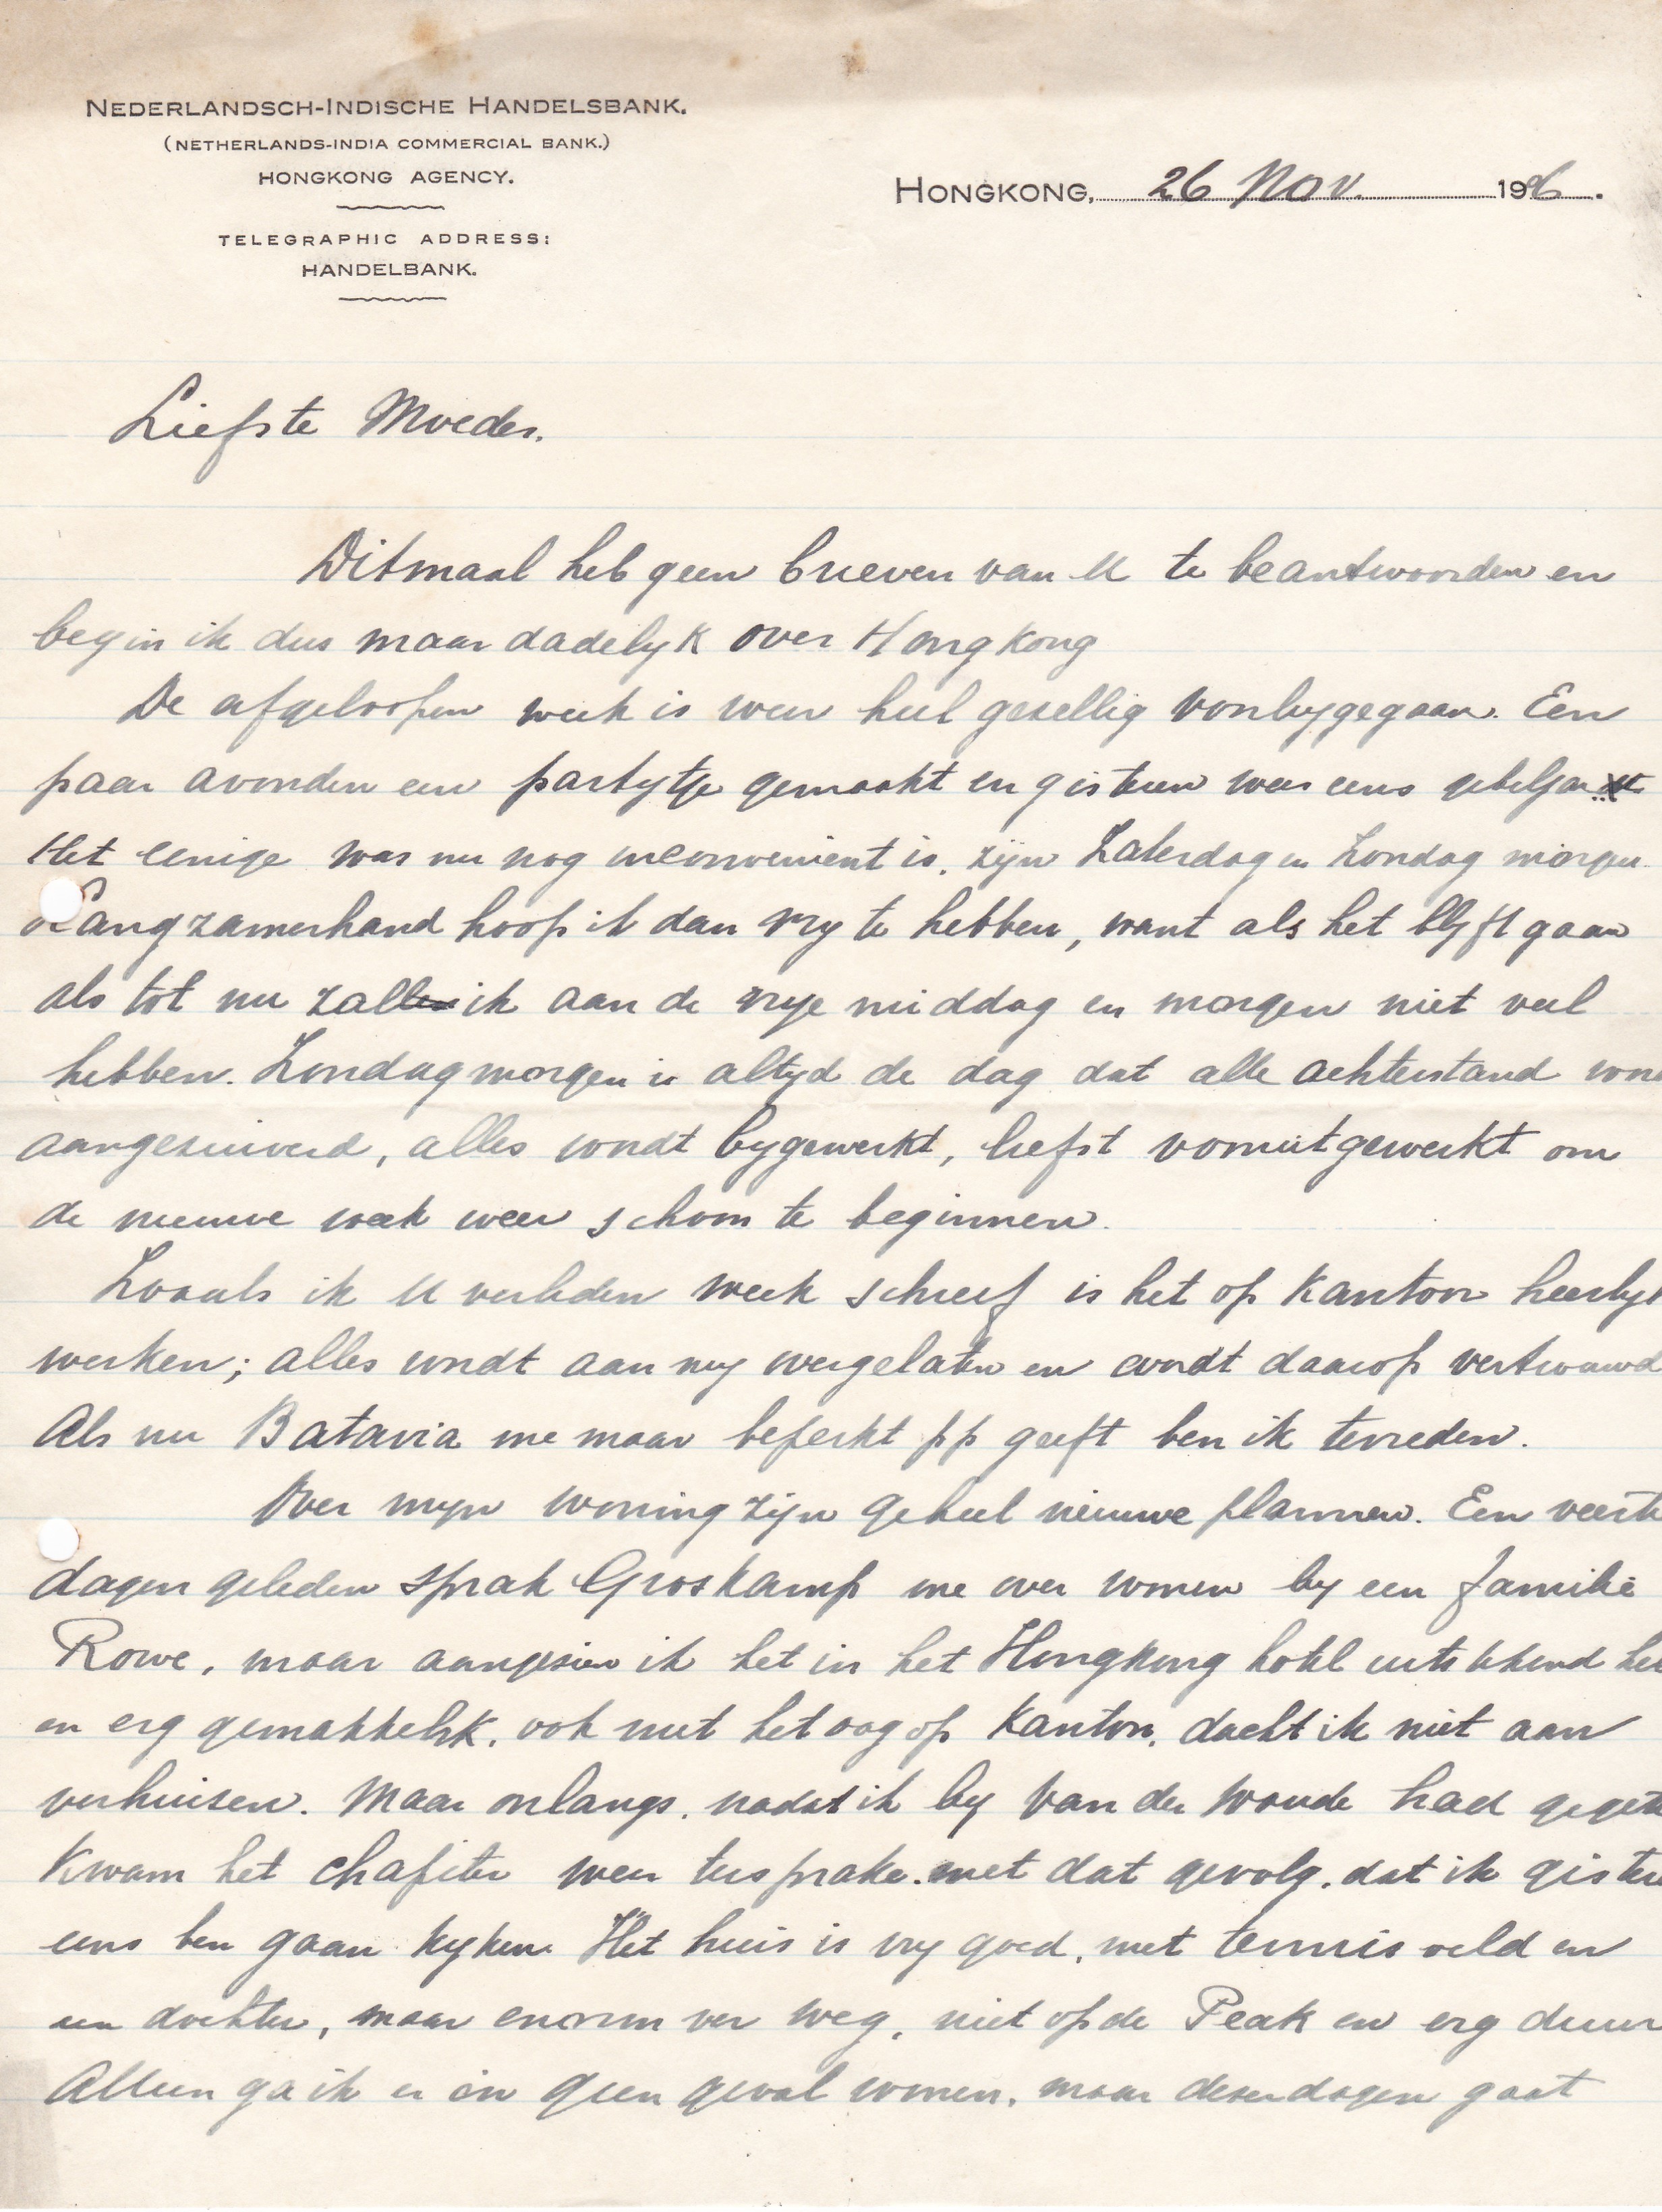 NEDERLANDSCH-INDISCHE HANDELSBANK.
(NETHERLANDS-INDIA COMMERCIAL BANK.)
HONGKONG AGENCY.
TELEGRAPHIC ADDRESS:
HANDELBANK.
HONGKONG, 26 Nov. 19
Liefste Moeder.
Ditmaal heb geen brieven van U te beantwoorden en
begin ik dus maar dadelyk over Hongkong
De afgeloopen week is weer heel gezellig voorbygegaan. Een
paar avonden een partytje gemaakt en gisteren weer eens
Het eenige was nu nog inconvenient is, zijn Zaterdag en Zondag morgen
Langzamerhand hoop ik dan vry te hebben, want als het blyft gaan
als tot nu zal ik aan de vrye middag en morgen niet veel
hebben. Zondagmorgen is altyd de dag dat alle achterstand word
aangezuiverd, alles wordt bygewerkt, liefst vooruitgewerkt om
de nieuwe week weer schoon te beginnen.
Zooals ik U verleden week schreef is het op Kantoor heerlyk
werken; alles wordt aan my overgelaten en wordt daarop vertrouwd
Als nu Batavia me maar beperkt pp geeft ben ik tevreden.
Over myn woning zijn geheel nieuwe plannen. Een veerti
dagen geleden sprak Groskamp me over wonen by een familie
Rowe, maar aangezien ik het in het Hongkong hotel uitstekend heb
en erg gemakkelyk, ook met het oog op Kantoor, dacht ik niet aan
verhuizen. Maar onlangs, nadat ik by Van der Woude had gegete
Kwam het chapiter weer ter sprake. met dat gevolg, dat ik gistere
eens ben gaan kyken. Het huis is vry goed, met tennisveld en
een dochter, maar enorm ver weg, niet op de Peak en erg duur
Alleen ga ik er in geen geval wonen, maar dezer dagen gaat